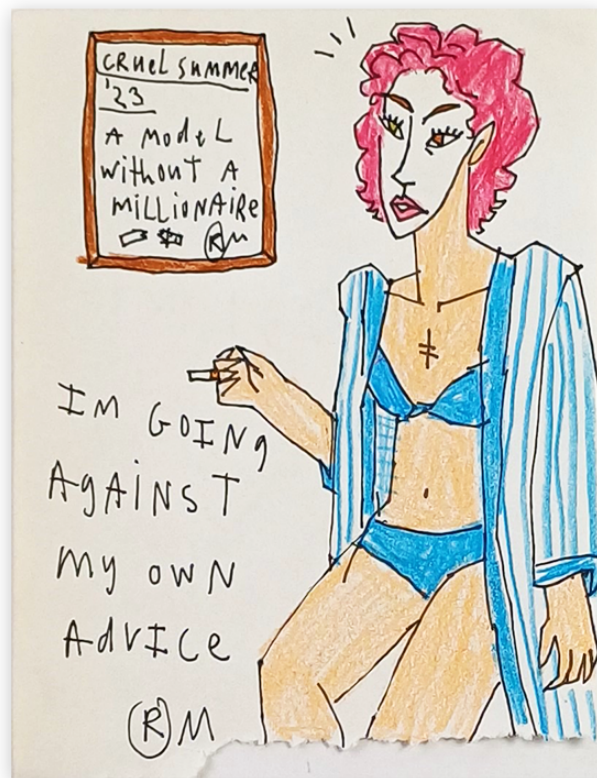 CRUEL SUMMER
'23
A MODEL
WITHOUT A
MILLIONAIRE
$ ®M
IM GOING
AGAINST
MY OWN
ADVICE
®M